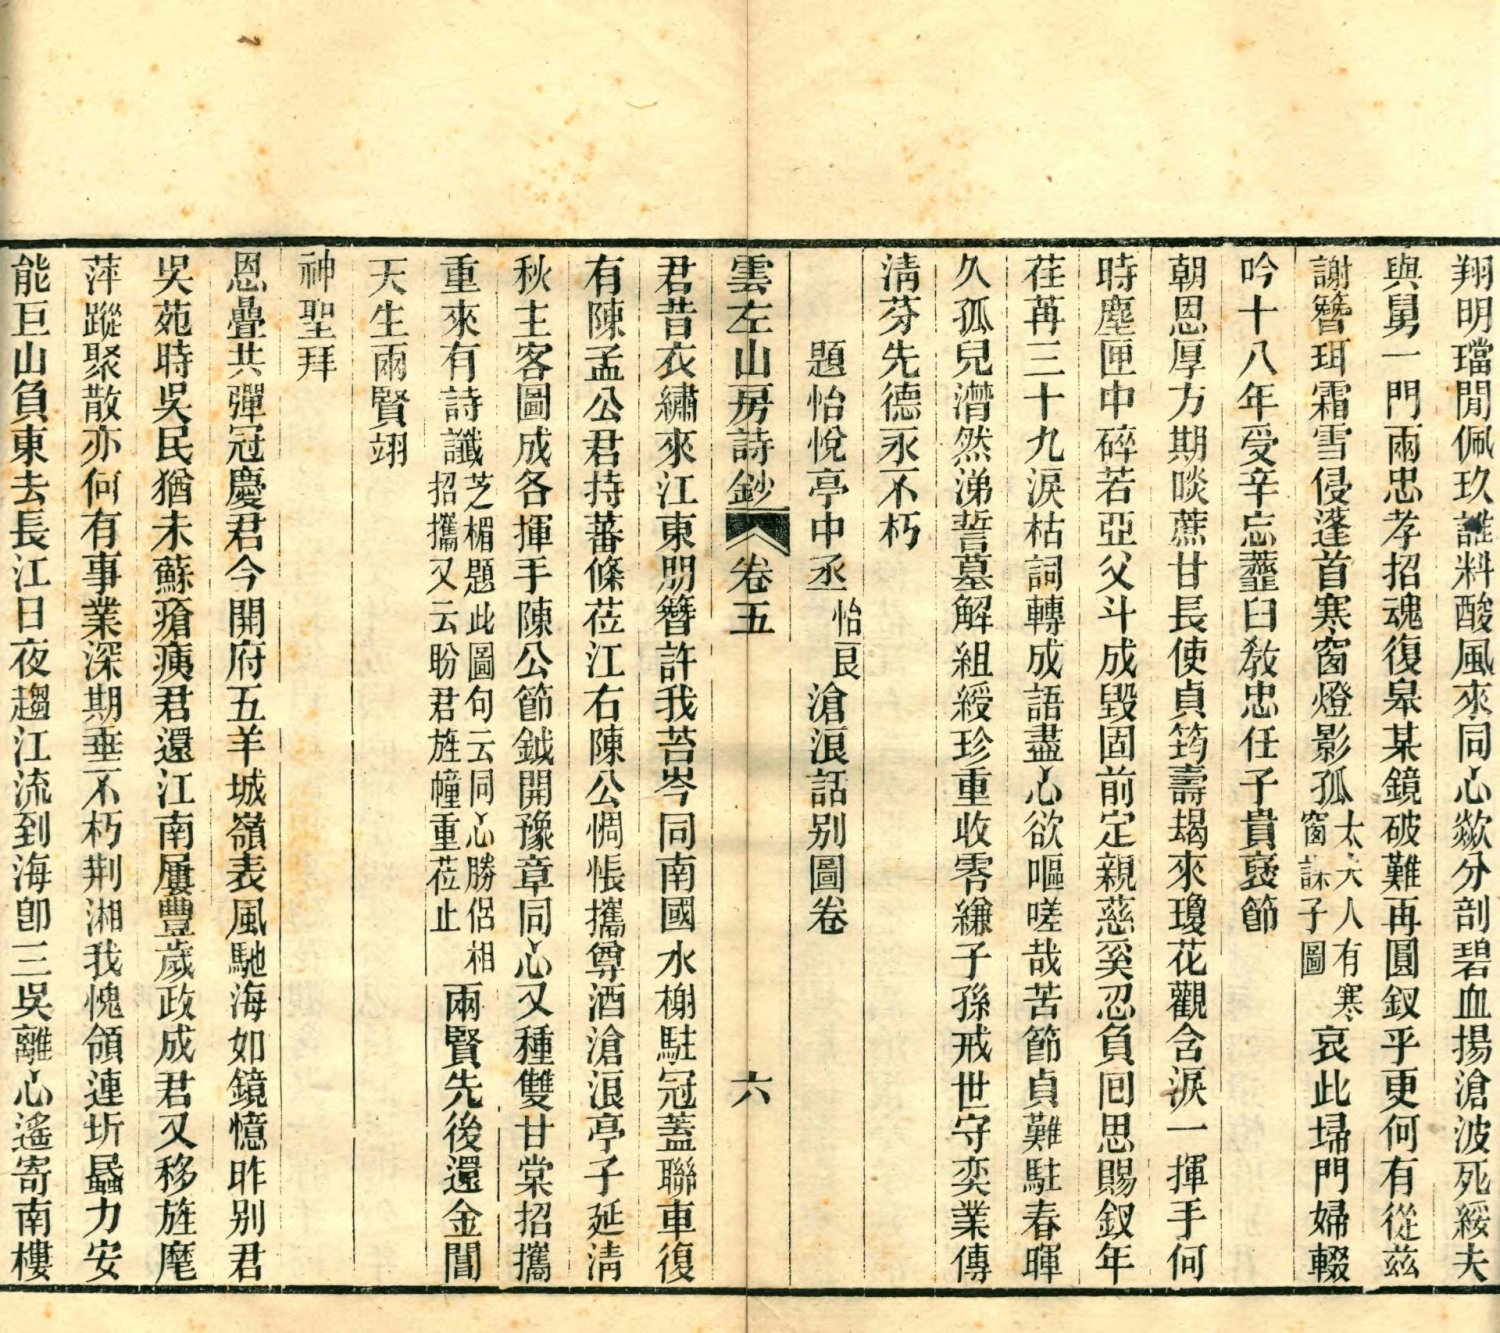 翔明璫閒佩玖誰料酸風來同心歘分剖碧血揚滄波死綏夫
與舅一門兩忠孝招魂復皋某鏡破難再圓釵乎更何有從茲
謝簪珥霜雪侵蓬首寒窗燈影孤太夫人有寒窗課子圖哀此埽門婦輟
吟十八年受辛忘虀臼敎忠任子貴褒節
朝恩厚方期啖蔗甘長使貞筠壽朅來瓊花觀含淚一揮手何
時塵匣中碎若亞父斗成毀固前定親慈奚忍負回思賜釵年
荏苒三十九淚枯詞轉成語盡心欲嘔嗟哉苦節貞難駐春暉
久孤兒潸然涕誓墓解組綬珍重收零縑子孫戒世守奕業傳
淸芬先德永不朽
題怡悅亭中丞怡良滄浪話別圖卷
雲左山房詩鈔 卷五 六
君昔衣繡來江東朋簪許我苔岑同南國水榭駐冠蓋聯車復
有陳孟公君持蕃條莅江右陳公惆悵攜尊酒滄浪亭子延淸
秋主客圖成各揮手陳公節鉞開豫章同心又種雙甘棠招攜
重來有詩讖芝楣題此圖句云同心勝侶相招攜又云盼君旌幢重莅止兩賢先後還金閶
天生兩賢翊
神聖拜
恩疊共彈冠慶君今開府五羊城嶺表風馳海如鏡憶昨別君
吳苑時吳民猶未蘇瘡痍君還江南屢豐歲政成君又移旌麾
萍蹤聚散亦何有事業深期垂不朽荆湘我愧領連圻蟁力安
能巨山負東去長江日夜趨江流到海卽三吳離心遙寄南樓